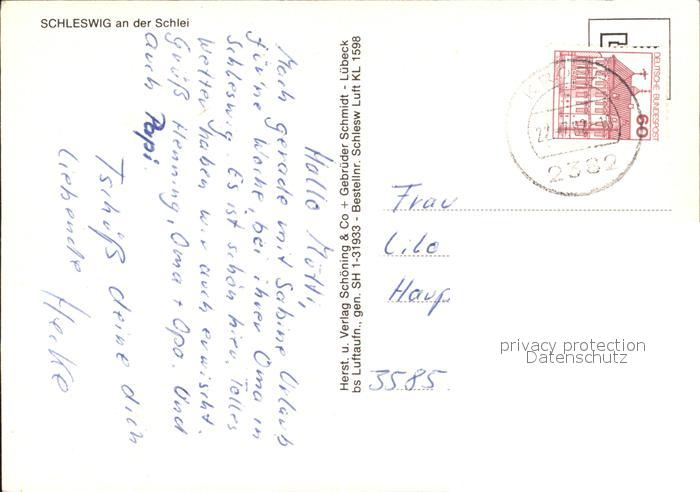 SCHLESWIG an der Schlei
Hallo Mutti,
Mach gerade mit Sabine Urlaub
für ne Woche, bei ihrer Oma in
Schleswig. Es ist schön hier. Tolles
Wetter haben wir auch erwischt.
Grüß Henning, Oma + Opa. Und
auch Papi.
Tschüß deine dich
liebende Heike
Herst. u. Verlag Schöning & Co + Gebrüder Schmidt - Lübeck
bs Luftaufn., gen. SH 1-31933 - Bestellnr. Schlesw Luft KL 1598
DEUTSCHE BUNDESPOST
60
2382
Frau
Lilo
Haup
3585
privacy protection
Datenschutz